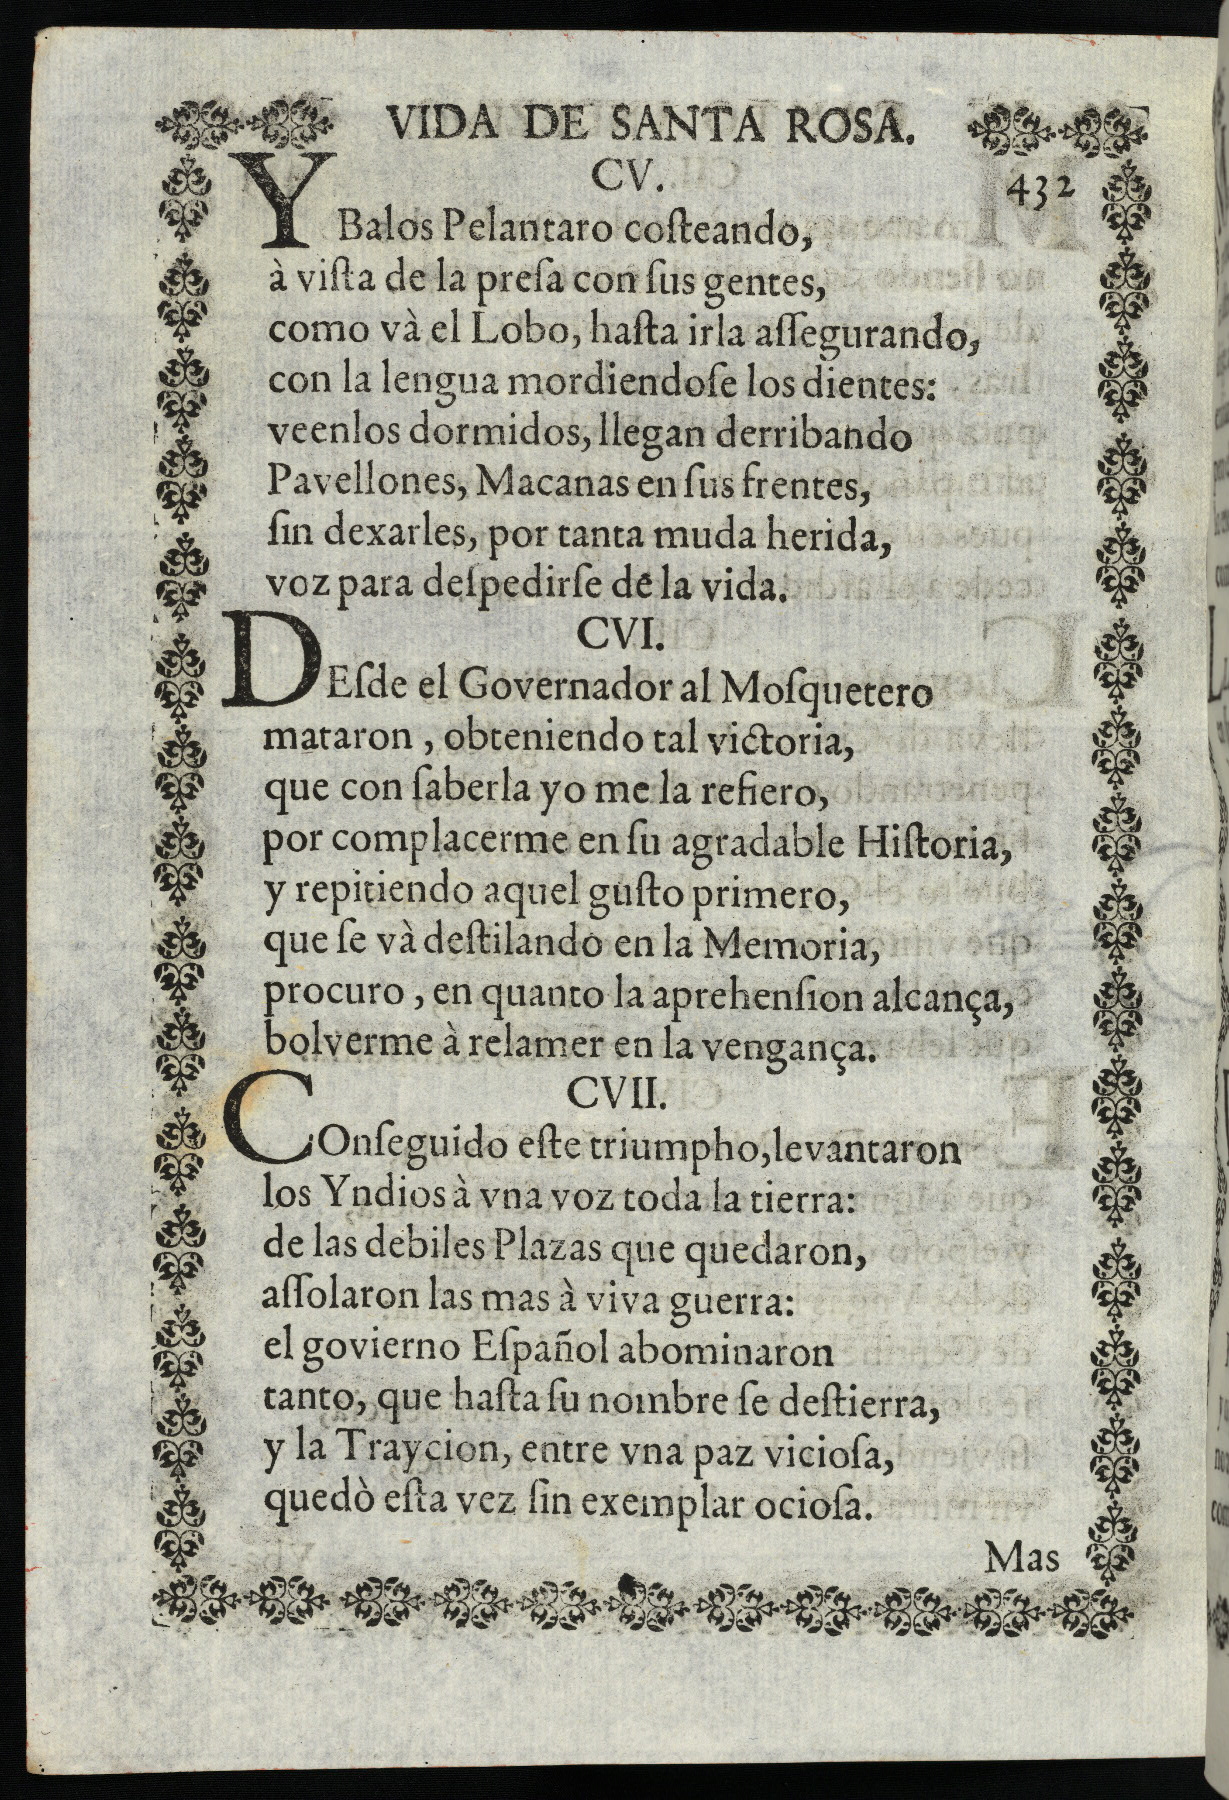 VIDA DE SANTA ROSA.
CV. 432
YBalos Pelantaro coſteando,
à viſta de la preſa con ſus gentes,
como và el Lobo, haſta irla aſſegurando,
con la lengua mordiendoſe los dientes:
veenlos dormidos, llegan derribando
Pavellones, Macanas en ſus frentes,
ſin dexarles, por tanta muda herida,
voz para deſpedirſe de la vida.
CVI.
DEſde el Governador al Moſquetero
mataron, obteniendo tal victoria,
que con ſaberla yo me la refiero,
por complacerme en ſu agradable Hiſtoria,
y repitiendo aquel guſto primero,
que ſe và deſtilando en la Memoria,
procuro, en quanto la aprehenſion alcança,
bolverme à relamer en la vengança.
CVII.
COnſeguido eſte triumpho, levantaron
los Yndios à vna voz toda la tierra:
de las debiles Plazas que quedaron,
aſſolaron las mas à viva guerra:
el govierno Eſpañol abominaron
tanto, que haſta ſu nombre ſe deſtierra,
y la Traycion, entre vna paz vicioſa,
quedò eſta vez ſin exemplar ocioſa.
Mas